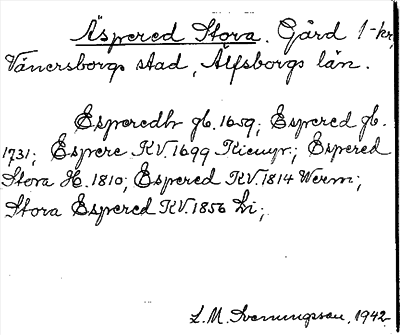 Äspered Stora. Gård 1-kr,
Vänersborgs stad, Älfsborgs län.
Esperedh gb. 1659; Espered gb.
1731; Espere KV. 1699 Kiewyr; Espered
Stora H. 1810; Espered KV. 1814 Werm;
Stora Espered KV. 1856 Li;
L. M. Svenungsson, 1942